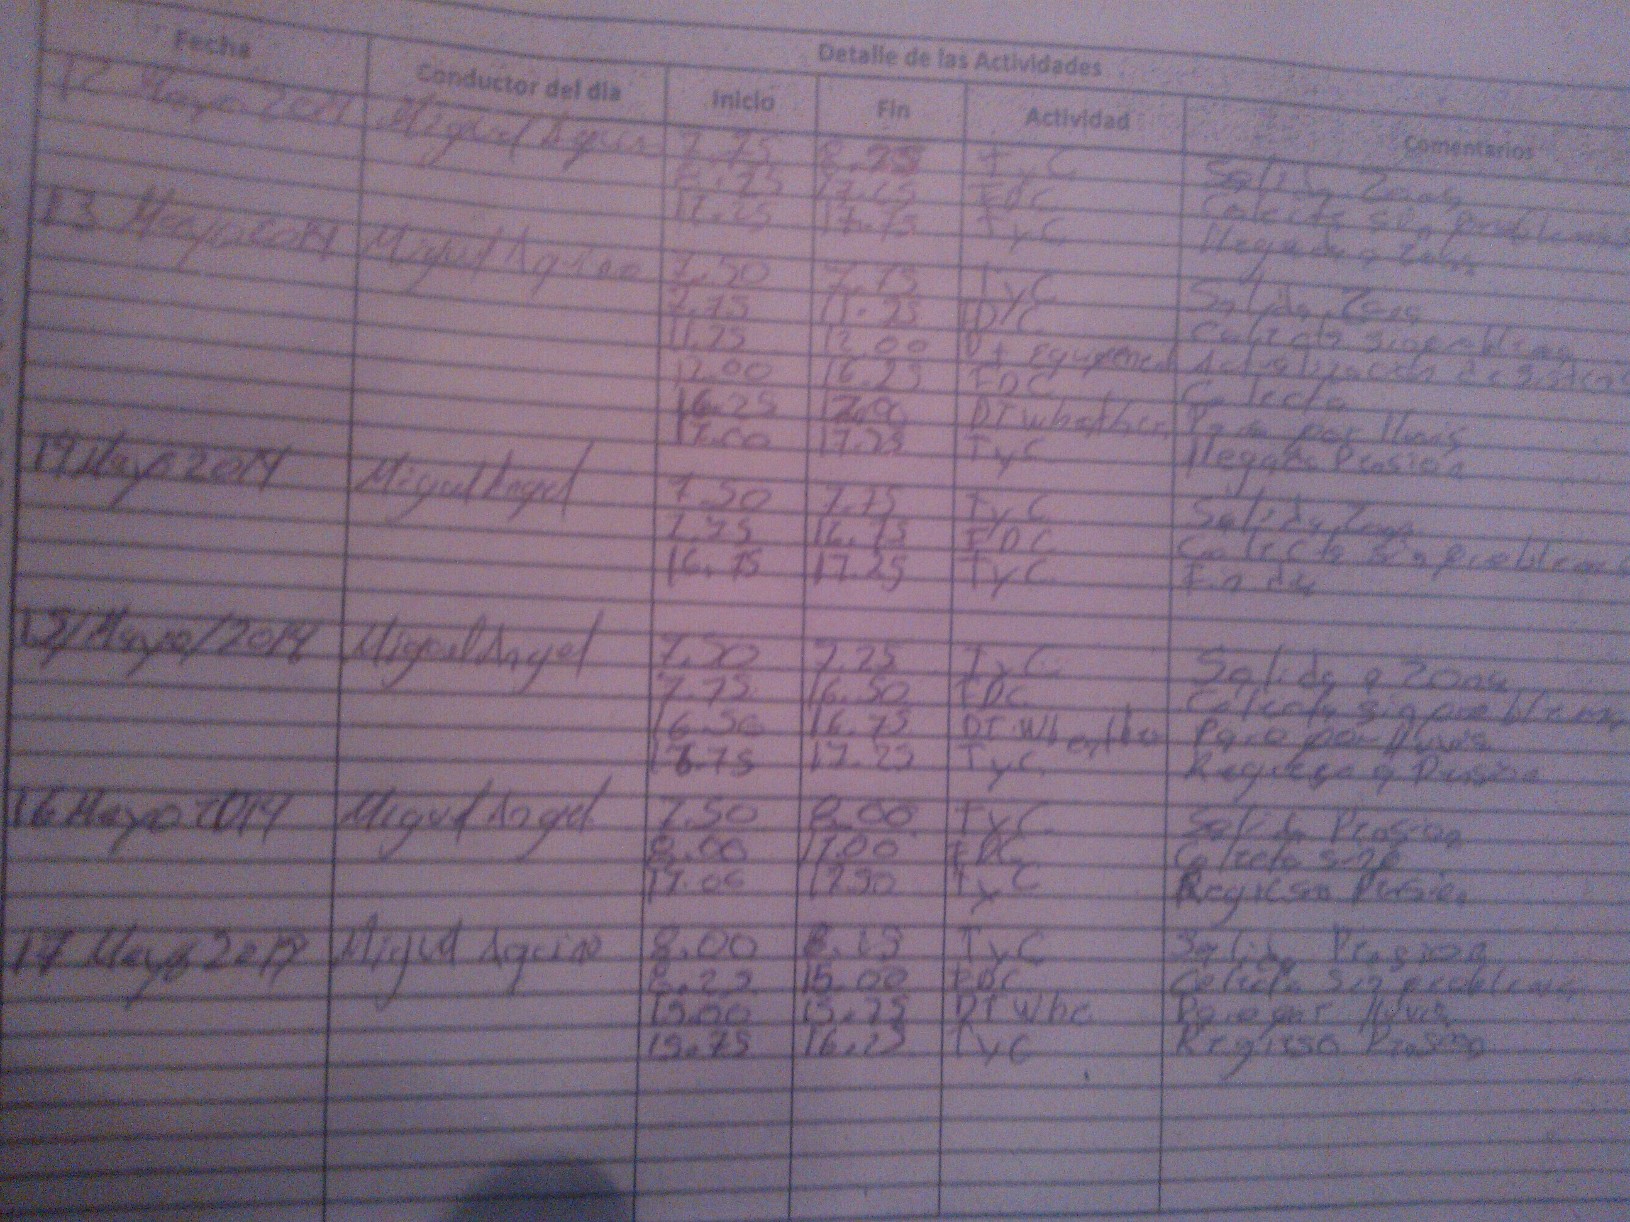 Detalle de las Actividades
Fecha Conductor del dia Inicio Fin Actividad Comentarios
12 Mayo 2014 Miguel 7.75 8.25 TyC Salida Zona
8.25 17.25 FDC Colecta sin problemas
17.25 17.75 TyC llegada a Zona
13 Mayo 2014 Miguel Aquino 7.50 7.75 TyC Salida Zona
7.75 11.25 FDC Colecta sin problemas
11.75 12.00 DT equipment Actualizacion de
12.00 16.25 FDC Colecta
16.25 17.00 DT Wheather Paro por lluvia
17.00 17.25 TyC llegada Prosion
14 Mayo 2014 Miguel Angel 7.50 7.75 TyC Salida Zona
7.75 16.75 FDC Colecta sin problemas
16.75 17.25 TyC Fin dia
15/Mayo/2014 Miguel Angel 7.50 7.25 TyC Salida a Zona
7.75 16.50 FDC Colecta sin problemas
16.50 16.75 DT Wheather Paro por lluvia
16.75 17.25 TyC Regreso a
16 Mayo 2014 Miguel Angel 7.50 8.00 TyC Salida Prosion
8.00 17.00 FDC Colecta
17.00 17.50 TyC Regreso
17 Mayo Miguel Aquino 8.00 TyC Salida Prosion
8.25 15.00 FDC Colecta sin problemas
15.00 15.75 DT Whe Paro por lluvia
15.75 16.25 TyC Regreso